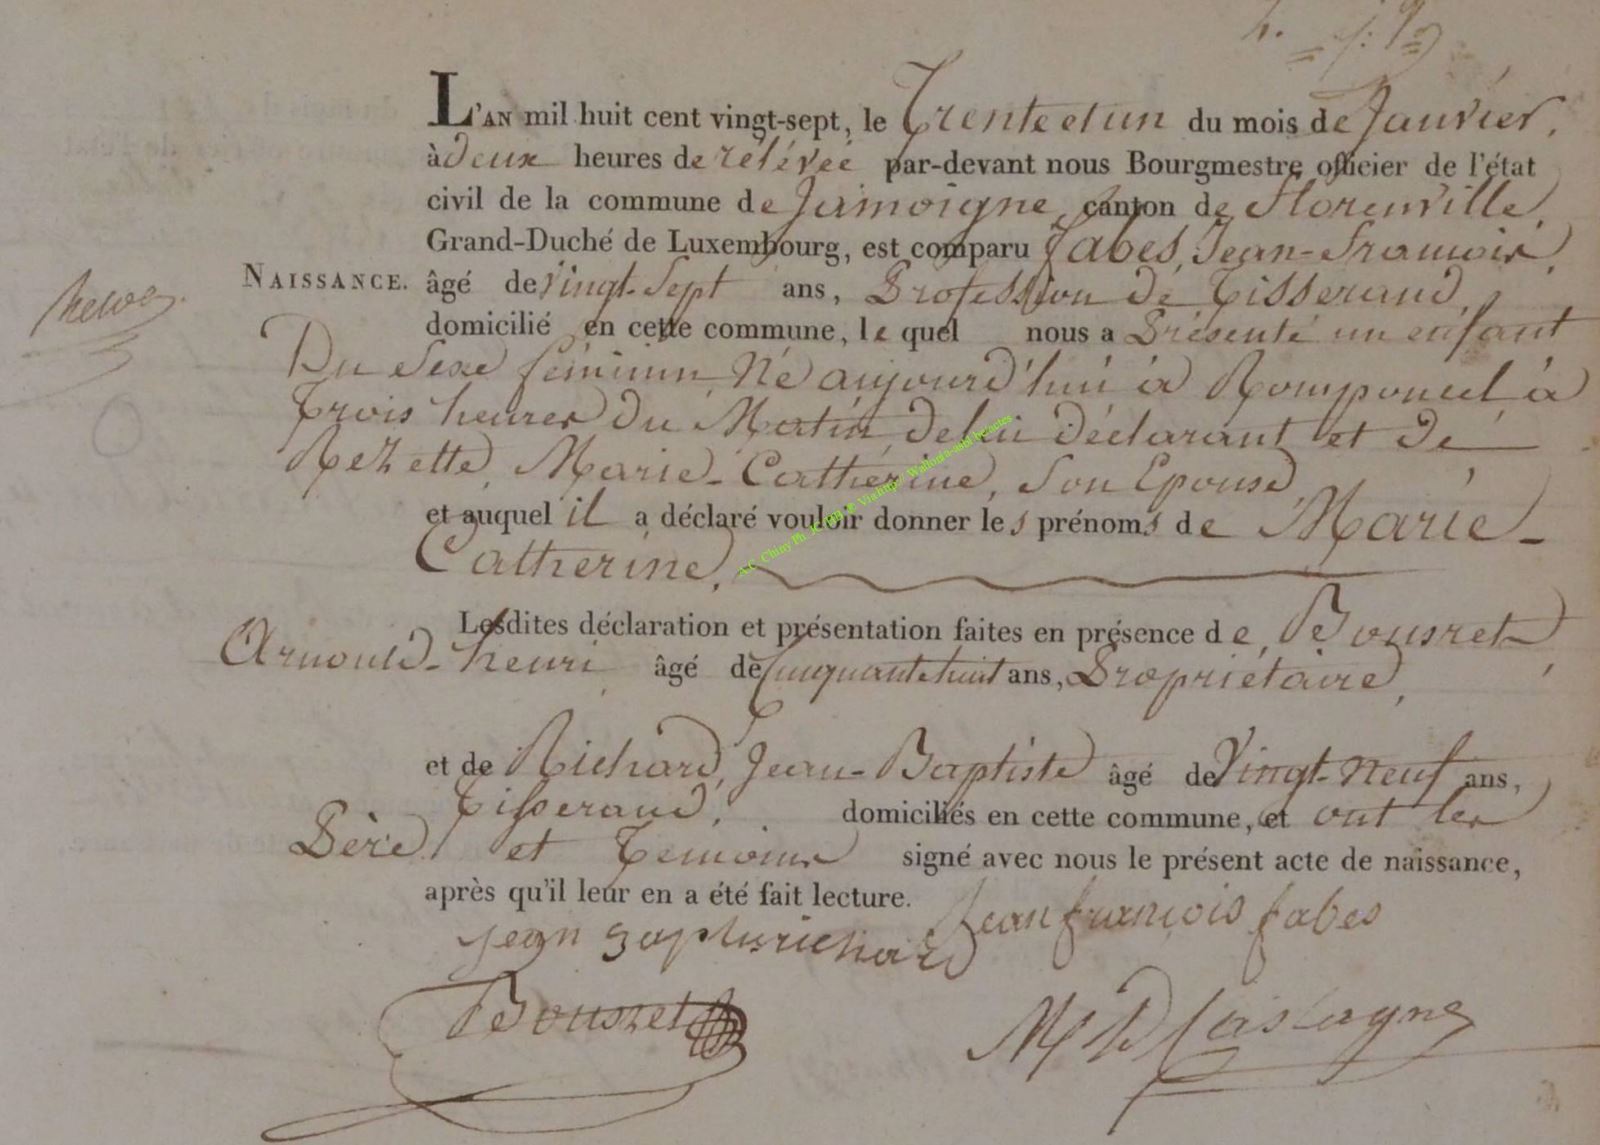 L'AN mil huit cent vingt-sept, le Trente et un du mois de Janvier,
à deux heures de rélévée par-devant nous Bourgmestre officier de l'état
civil de la commune de Jamoigne, canton de Florenville,
Grand-Duché de Luxembourg, est comparu Fabes, Jean-Francois,
NAISSANCE. âgé de Vingt-Sept ans, Profession de Tisserand,
domicilié en cette commune, le quel nous a Présenté un enfant
Du Sexe féminin Né aujourd'hui à Romponcel à
Trois heures du Matin, de lui déclarant et de
Rezette, Marie-Cathérine, Son Epouse,
et auquel il a déclaré vouloir donner les prénoms de Marie-
Catherine,
A.C. Chiny Ph. Wallonia-asbl.be/actes
Lesdites déclaration et présentation faites en présence de, Bousret,
Arnould-henri, âgé de Cinquante huit ans, Propriétaire,
et de Richard, Jean-Baptiste âgé de Vingt-Neuf ans,
Tisserand, domiciliés en cette commune, et ont les
Père et Temoins signé avec nous le présent acte de naissance,
après qu'il leur en a été fait lecture.
jean françois fabes
jean baptis richard
Bousret
Castagne